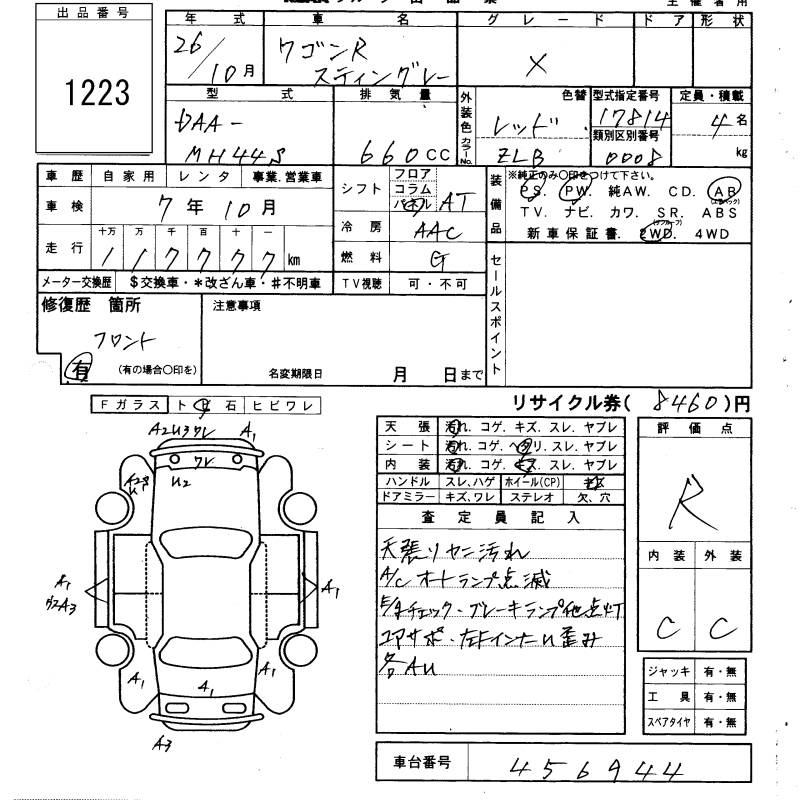 出品番号
1223
年式 車名 グレード ドア 形状
26/10月 ワゴンR スティングレー X
型式 排気量 外装色 カラーNo. 色替 型式指定番号 定員・積載
DAA-
MH44S
660cc
レッド
ZLB
17814
類別区別番号
0008
4名
kg
車歴 自家用 レンタ 事業.営業車
車検 7年10月
走行 十万 万 千 百 十 一
117777km
メーター交換歴 $交換車・*改ざん車・#不明車
シフト フロア コラム パネル AT
冷房 AAC
燃料 G
TV視聴 可・不可
装備品
※純正のみ〇印をつけて下さい。
PS. PW. 純AW. CD. AB
TV. ナビ. カワ. SR. ABS
新車保証書. 2WD. 4WD
セールスポイント
修復歴 箇所
フロント
有 (有の場合〇印を)
注意事項
名変期限日 月 日まで
リサイクル券(8460)円
Fガラス トビ石 ヒビワレ
A2U3ワレ A1
ワレ
U2
A1
A1
A1
A1
A1
A3
天張 汚れ. コゲ. キズ. スレ. ヤブレ
シート 汚れ. コゲ. ヘタリ. スレ. ヤブレ
内装 汚れ. コゲ. キズ. スレ. ヤブレ
ハンドル スレ,ハゲ ホイール(CP) キズ
ドアミラー キズ,ワレ ステレオ 欠、穴
査定員記入
天張リヤニ汚れ
A/C オートランプ点滅
E/gチェック・ブレーキランプ他点灯
コアサポ・左FインナーU歪み
各AU
評価点
R
内装 外装
C C
ジャッキ 有・無
工具 有・無
スペアタイヤ 有・無
車台番号 456944